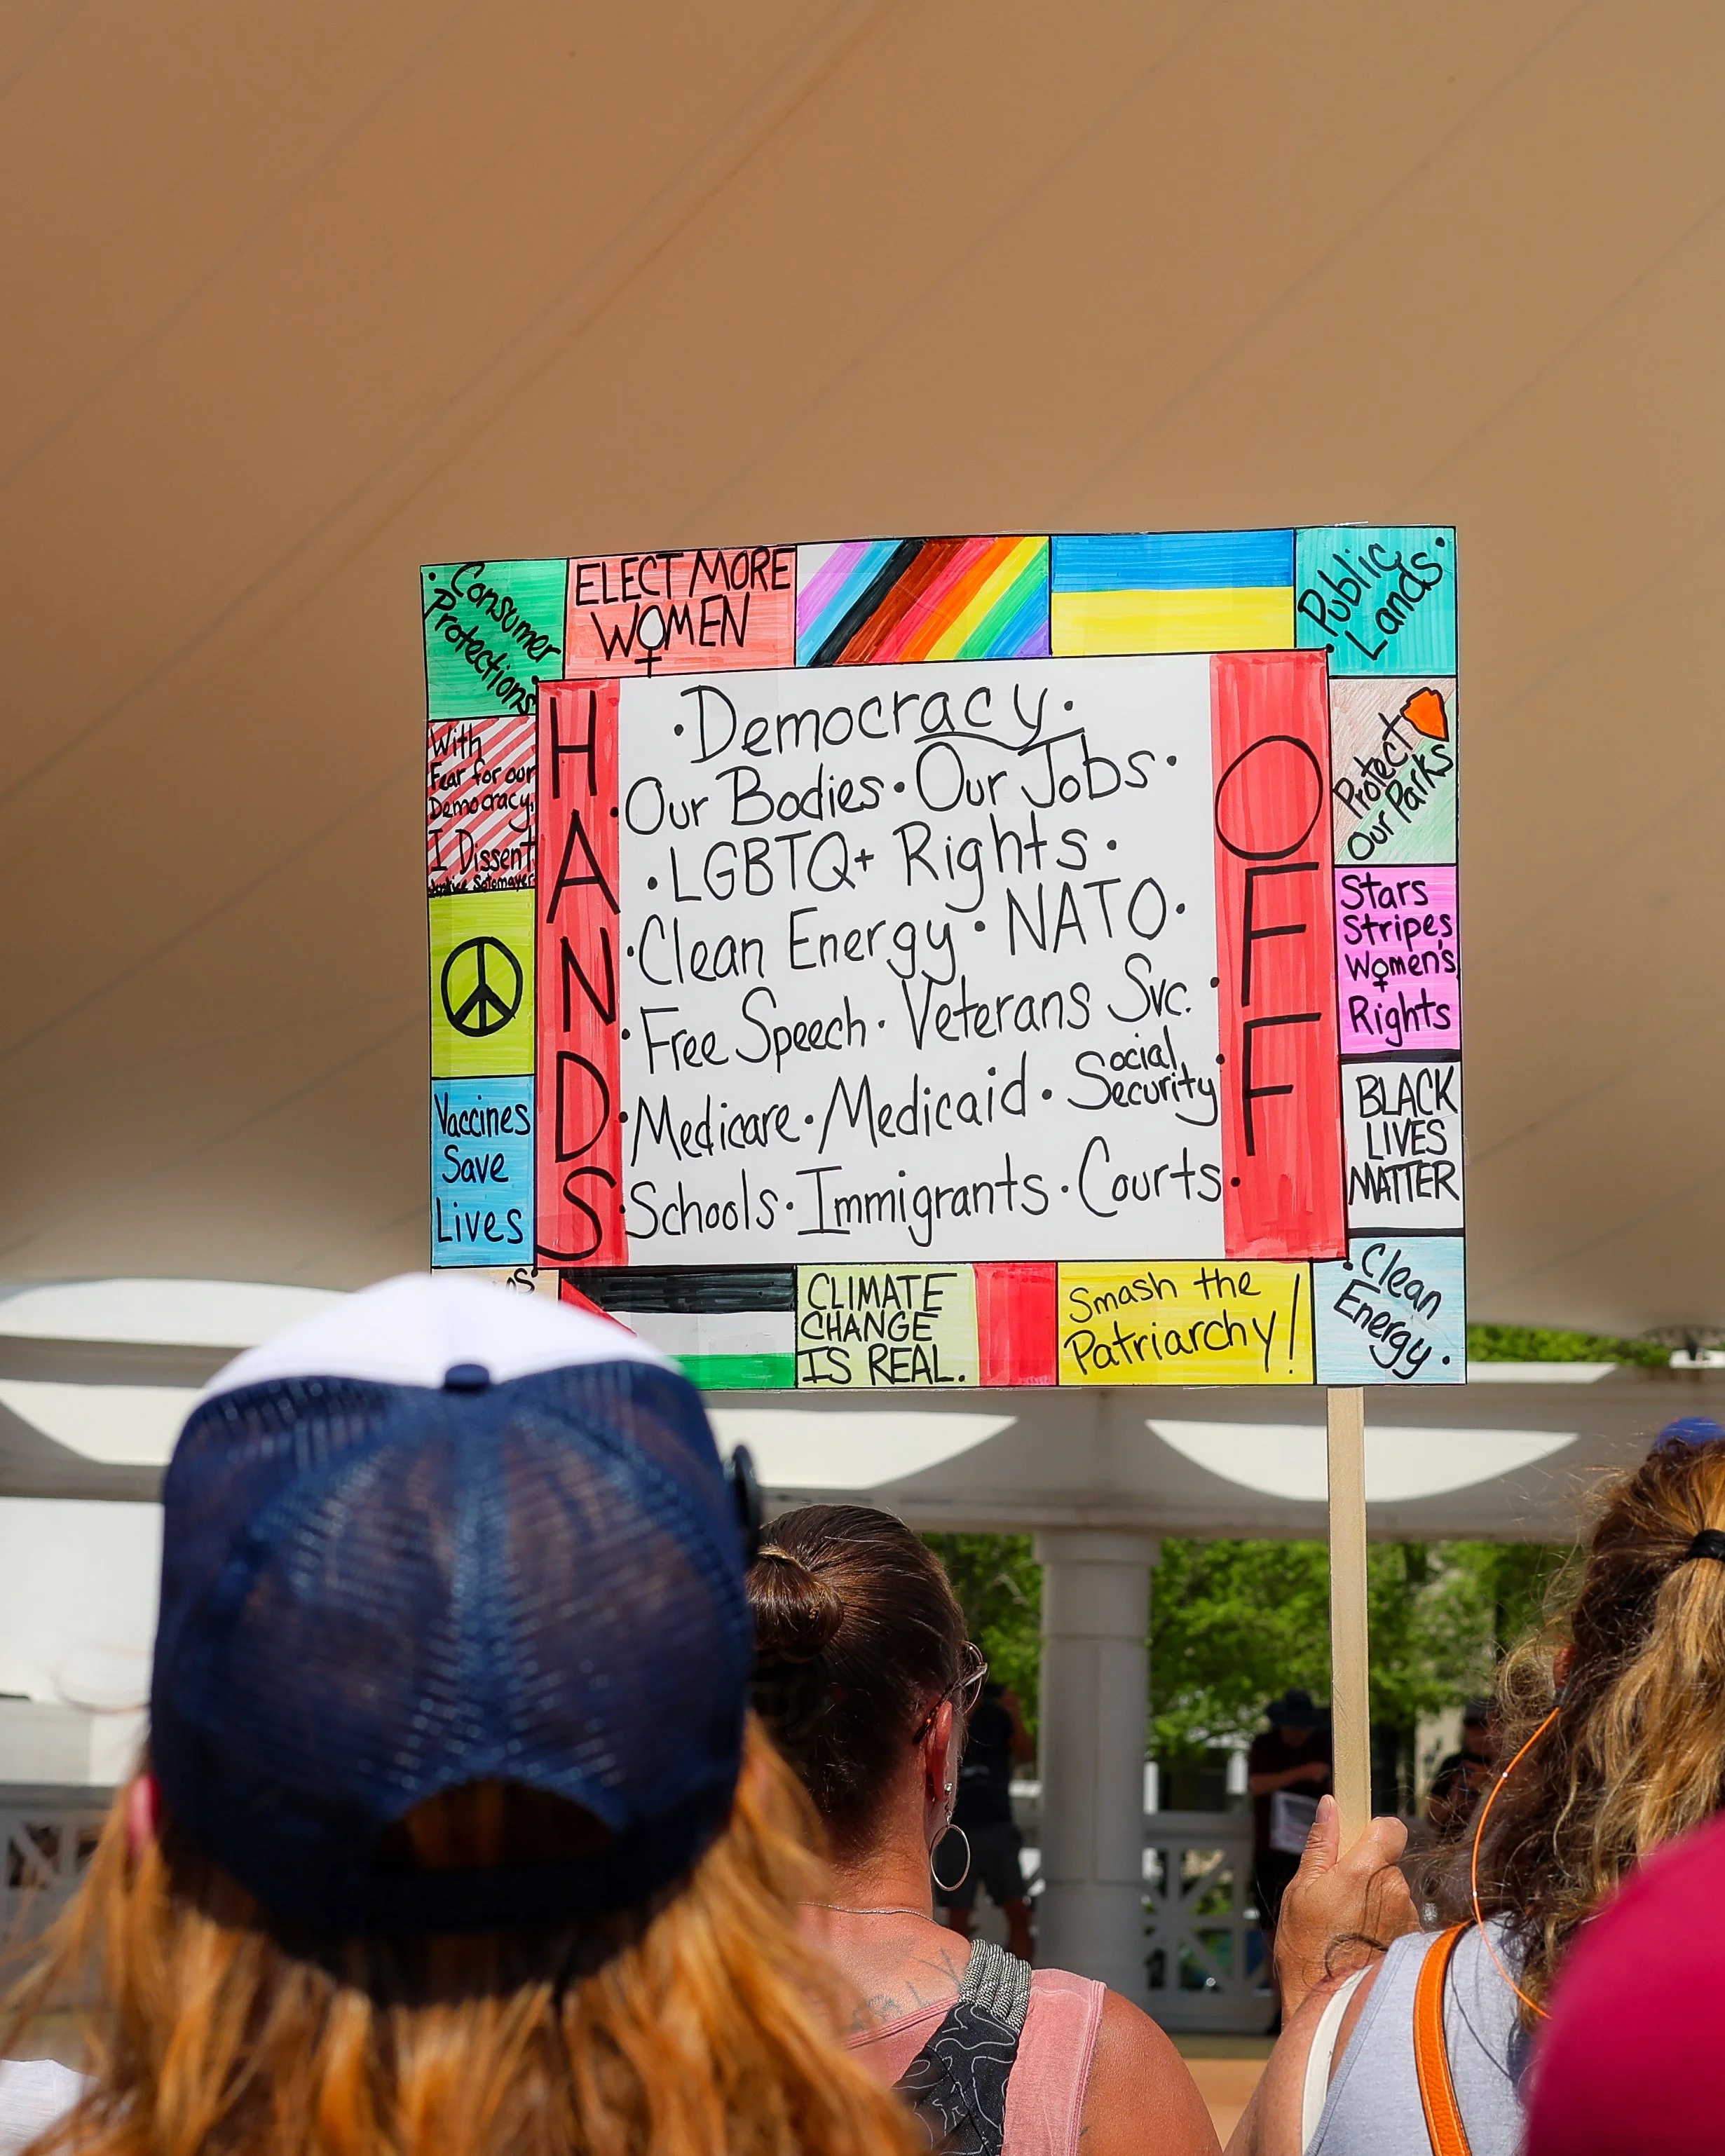 Consumer
Protections
ELECT MORE
WOMEN
Public
Lands
With
Fear for our
Democracy,
I Dissent
Justice Sotomayor
Vaccines
Save
Lives
HANDS
• Democracy •
• Our Bodies • Our Jobs •
• LGBTQ+ Rights •
• Clean Energy • NATO •
• Free Speech • Veterans Svc. •
• Medicare • Medicaid • Social Security •
• Schools • Immigrants • Courts •
OFF
Protect
Our Parks
Stars
Stripes
Women's
Rights
BLACK
LIVES
MATTER
CLIMATE
CHANGE
IS REAL.
Smash the
Patriarchy!
Clean
Energy